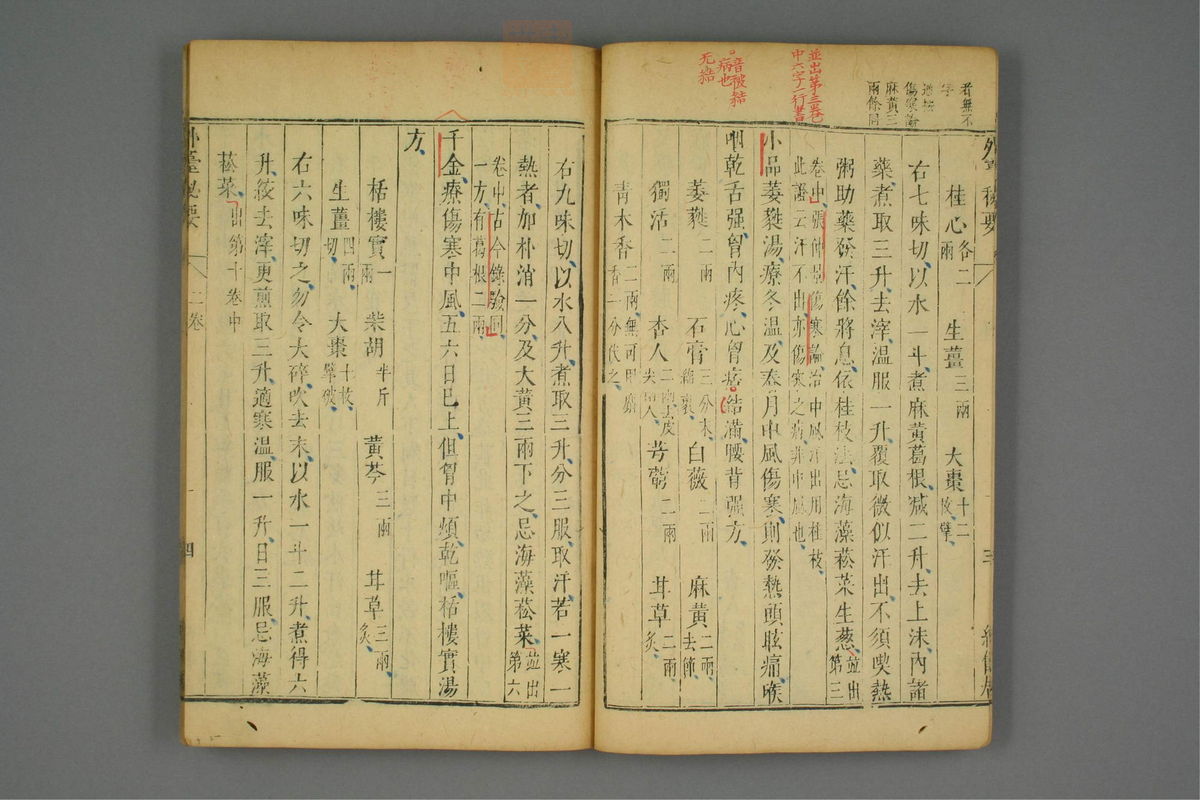 桂心各二兩 生薑三兩 大棗十二枚擘
右七味切以水一斗煮麻黃葛根減二升去上沫內諸
藥煮取三升去滓溫服一升覆取微似汗出不須喫熱
粥助藥發汗餘將息依桂枝法忌海藻菘菜生葱並出第三
卷中張仲景傷寒論治中風汗出用桂枝此證云汗不出亦傷寒之病非中風也
小品葳蕤湯療冬溫及春月中風傷寒則發熱頭眩痛喉
咽乾舌强胷內疼心胷痞結滿腰背强方
葳蕤二兩 石膏三分末綿裹 白薇二兩 麻黃二兩去節
獨活二兩 杏人二兩去皮尖兩人 芎藭二兩 甘草二兩炙
青木香二兩無可用麝香一分代之
右九味切以水八升煮取三升分三服取汗若一寒一
熱者加朴消一分及大黃三兩下之忌海藻菘菜並出第六
卷中古今錄驗同一方有葛根二兩
千金療傷寒中風五六日已上但胷中煩乾嘔栝樓實湯
方
栝樓實一兩 柴胡半斤 黃芩三兩 甘草三兩炙
生薑四兩切 大棗十枚擘破
右六味切之勿令大碎吹去末以水一斗二升煮得六
升絞去滓更煎取三升適寒溫服一升日三服忌海藻
菘菜出第十卷中
外臺秘要 二卷 四
外臺秘要 三
並出第三卷
中六字一行書
音被結
病也
无結
者無不
傷寒論
麻黃三
兩餘同